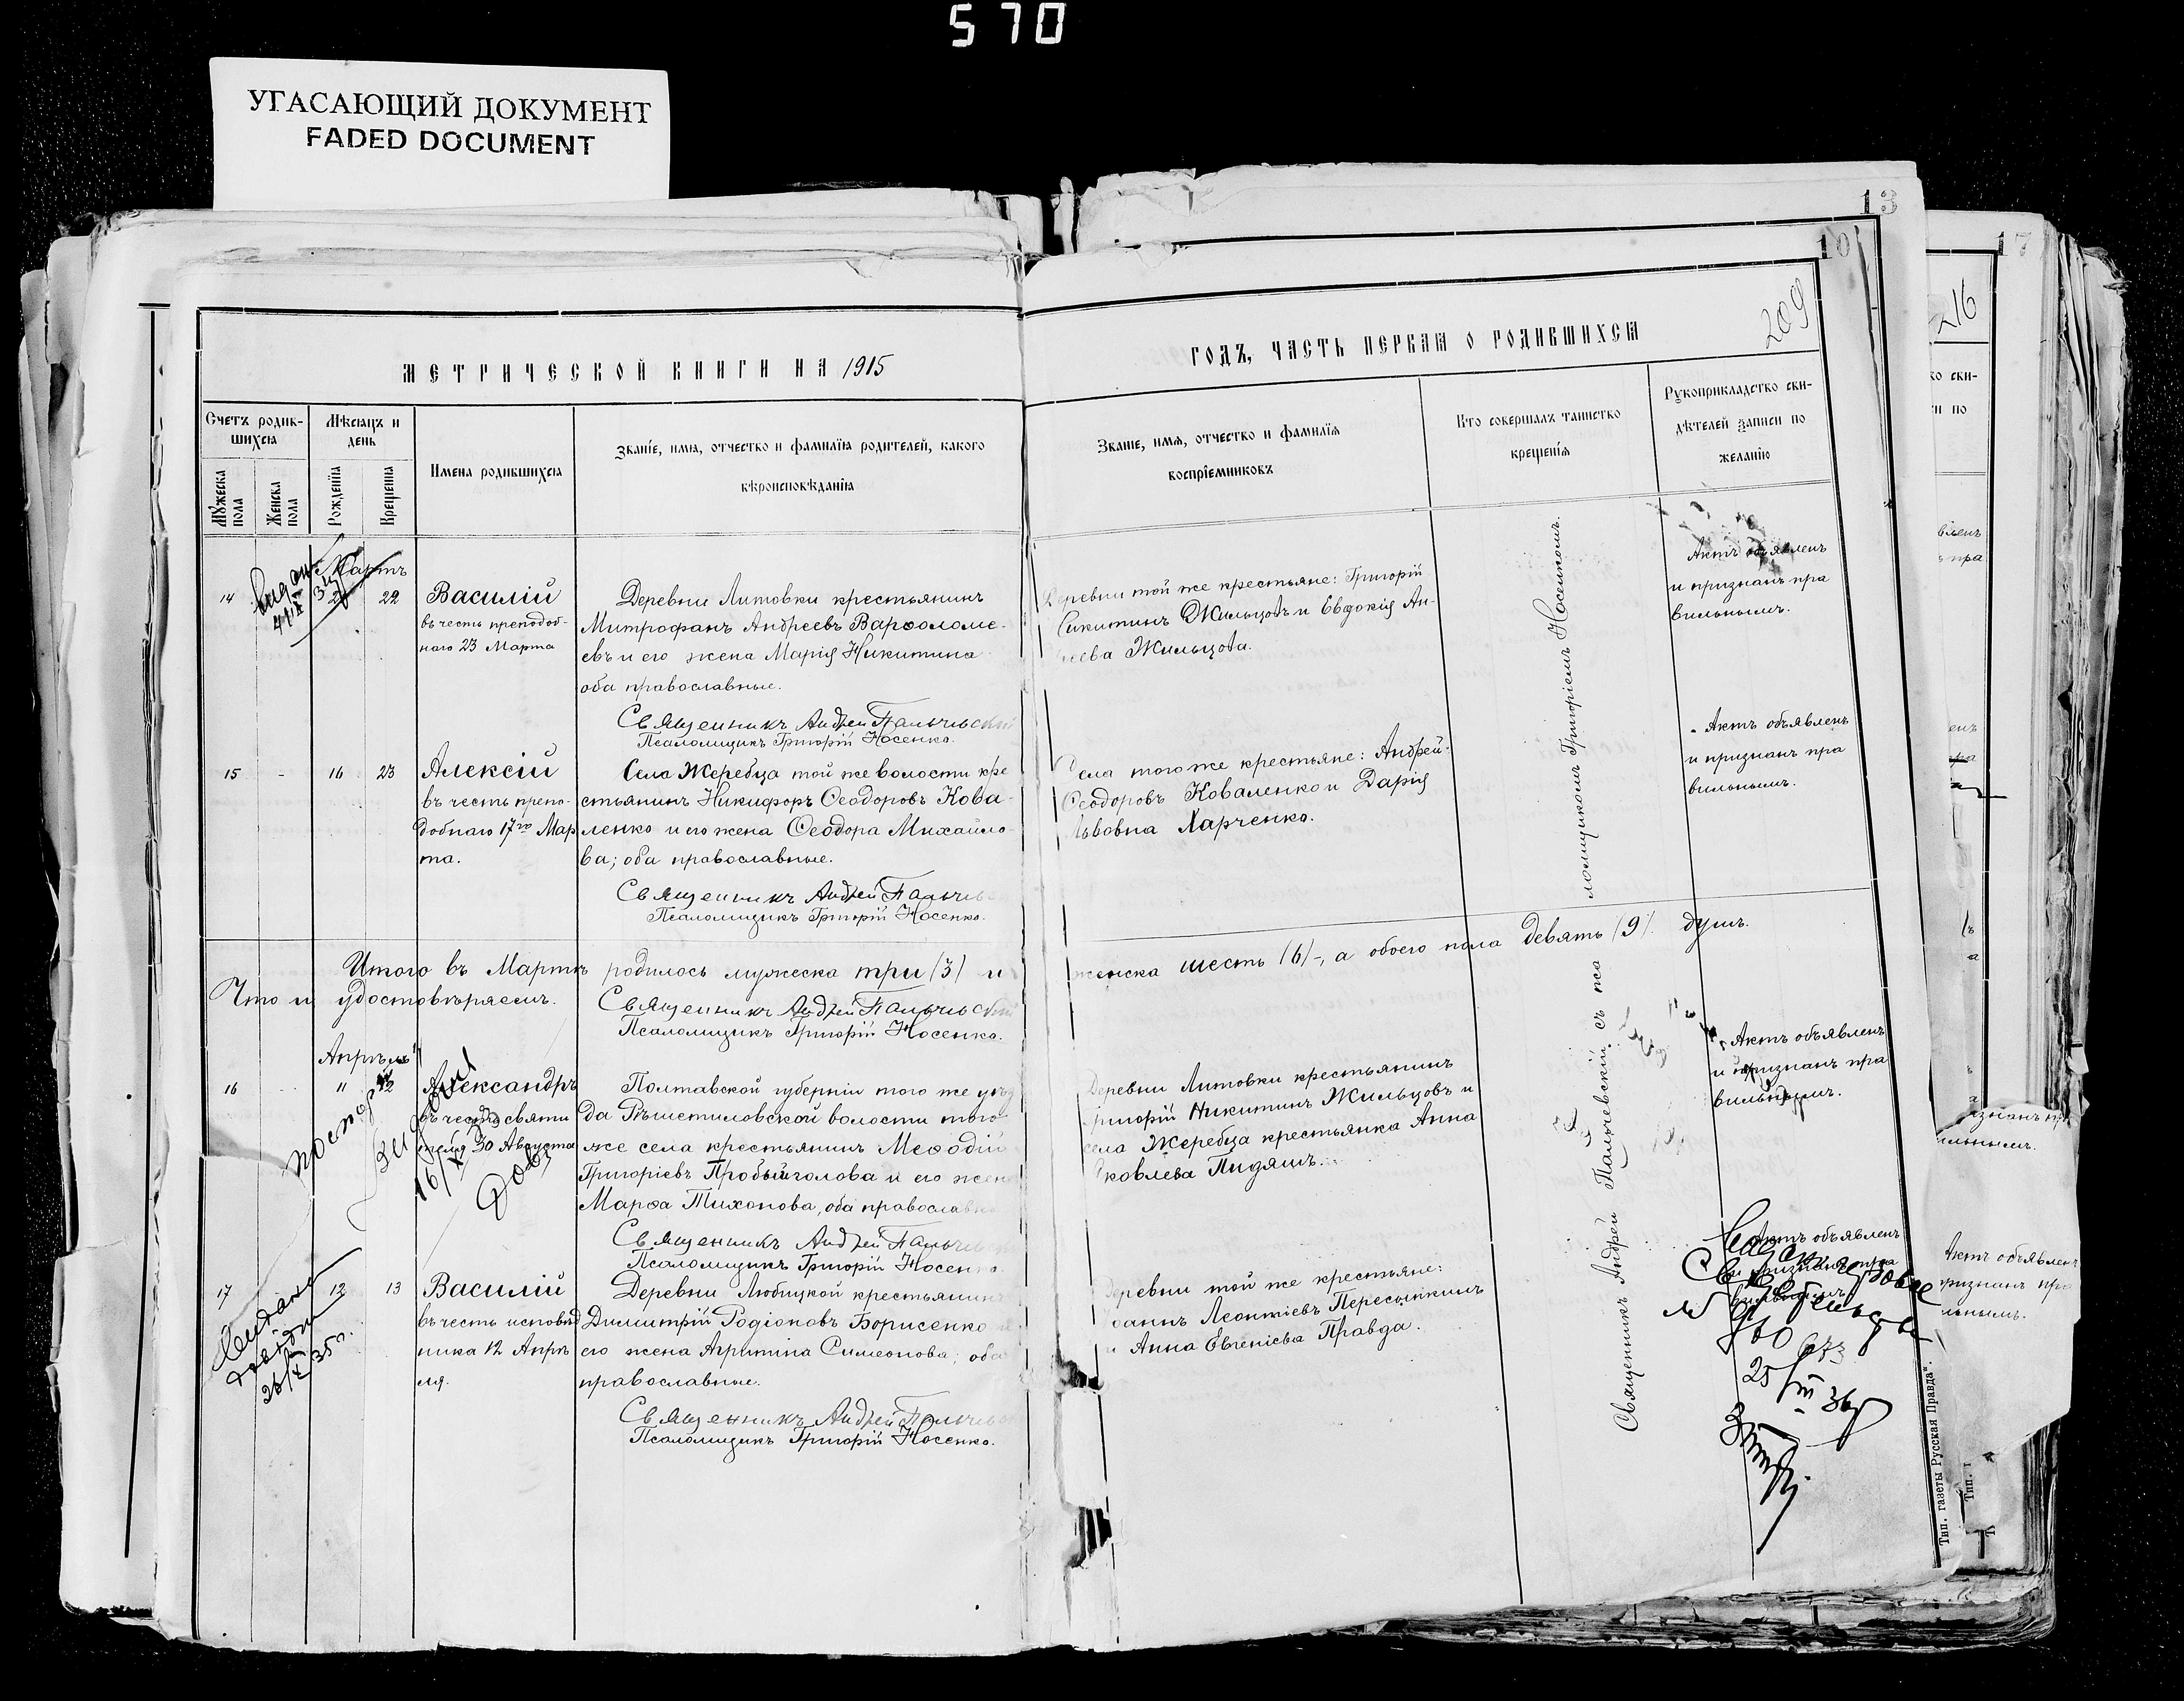 570
УГАСАЮЩИЙ ДОКУМЕНТ
FADED DOCUMENT
13
10
17
209
216
МЕТРИЧЕСКОЙ КНИГИ НА 1915
ГОДЪ, ЧАСТЬ ПЕРВАЯ О РОДИВШИХСЯ
Счетъ родив-
шихся
Мужеска пола
Женска пола
Мѣсяцъ и
день
Рожденія
Крещенія
Имена родившихся
Званіе, имя, отчество и фамилія родителей, какого
вѣроисповѣданія
Званіе, имя, отчество и фамилія
воспріемниковъ
Кто совершалъ таинство
крещенія
Рукоприкладство сви-
дѣтелей записи по
желанію
Мартъ
14
22
Василій
въ честь преподоб-
наго 23 Марта
Деревни Литовки крестьянинъ
Митрофанъ Андреевъ Варѳоломе-
евъ и его жена Марія Никитина
оба православные.
Священникъ Андрей Пальчевскій
Псаломщикъ Григорій Носенко.
Деревни той же крестьяне: Григорій
Никитинъ Жильцовъ и Евдокія Ан-
Жильцова.
Актъ объявленъ
и признанъ пра
вильнымъ.
15
-
16
23
Алексій
въ честь препо-
добнаго 17го Мар
та.
Села Жеребца той же волости кре
стьянинъ Никифоръ Ѳеодоровъ Кова-
ленко и его жена Ѳеодора Михайло-
ва; оба православные.
Священникъ Андрей Пальчевс
Псаломщикъ Григорій Носенко.
Села того же крестьяне: Андрей
Ѳеодоровъ Коваленко и Дарія
Львовна Харченко.
- Актъ объявленъ
и признанъ пра
вильнымъ.
Итого въ Мартѣ родилось мужеска три (3) и женска шесть (6)-, а обоего пола девять (9). душъ.
Что и удостовѣряемъ.
Священникъ Андрей Пальчевскій
Псаломщикъ Григорій Носенко.
Апрѣль
16
11
12
Александръ
въ честь святи
теля 30 Августа
Полтавской губерніи того же уѣз
да Рѣшетиловской волости того
же села крестьянинъ Меѳодій
Григоріевъ Пробыйголова и его жена
Марѳа Тихонова, оба православные
Священникъ Андрей Пальчевск
Псаломщикъ Григорій Носенко
Деревни Литовки крестьянинъ
Григорій Никитинъ Жильцовъ и
села Жеребца крестьянка Анна
Яковлева Пидяшъ.
Актъ объявленъ
и признанъ пра
вильнымъ.
17
12
13
Василій
въ честь исповѣд
ника 12 Апрѣ
ля.
Деревни Любицкой крестьянинъ
Димитрій Родіоновъ Борисенко и
его жена Агрипина Симеонова; оба
православные.
Священникъ Андрей Пальчевс
Псаломщикъ Григорій Носенко.
Деревни той же крестьяне:
Леонтіевъ Пересыпкинъ
и Анна Евгеніева Правда.
Актъ объявленъ
Священникъ Андрей Пальчевскій съ пса
ломщикомъ Григоріемъ Носенкомъ.
Тип. газеты „Русская Правда“.